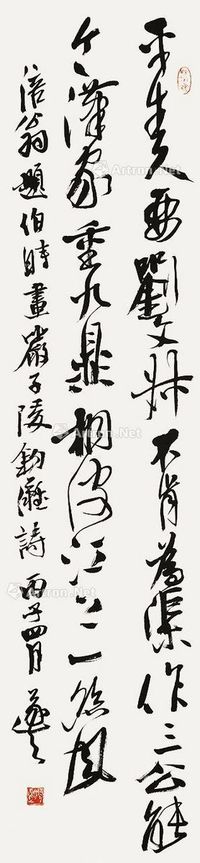 平生久要劉文叔不肯為渠作三公能
令漢家重九鼎桐波江上一絲風
涪翁題伯時畫嚴子陵釣灘詩 丙子四月
Artron.Net
Artron.Net
Artron.Net
Artron.Net